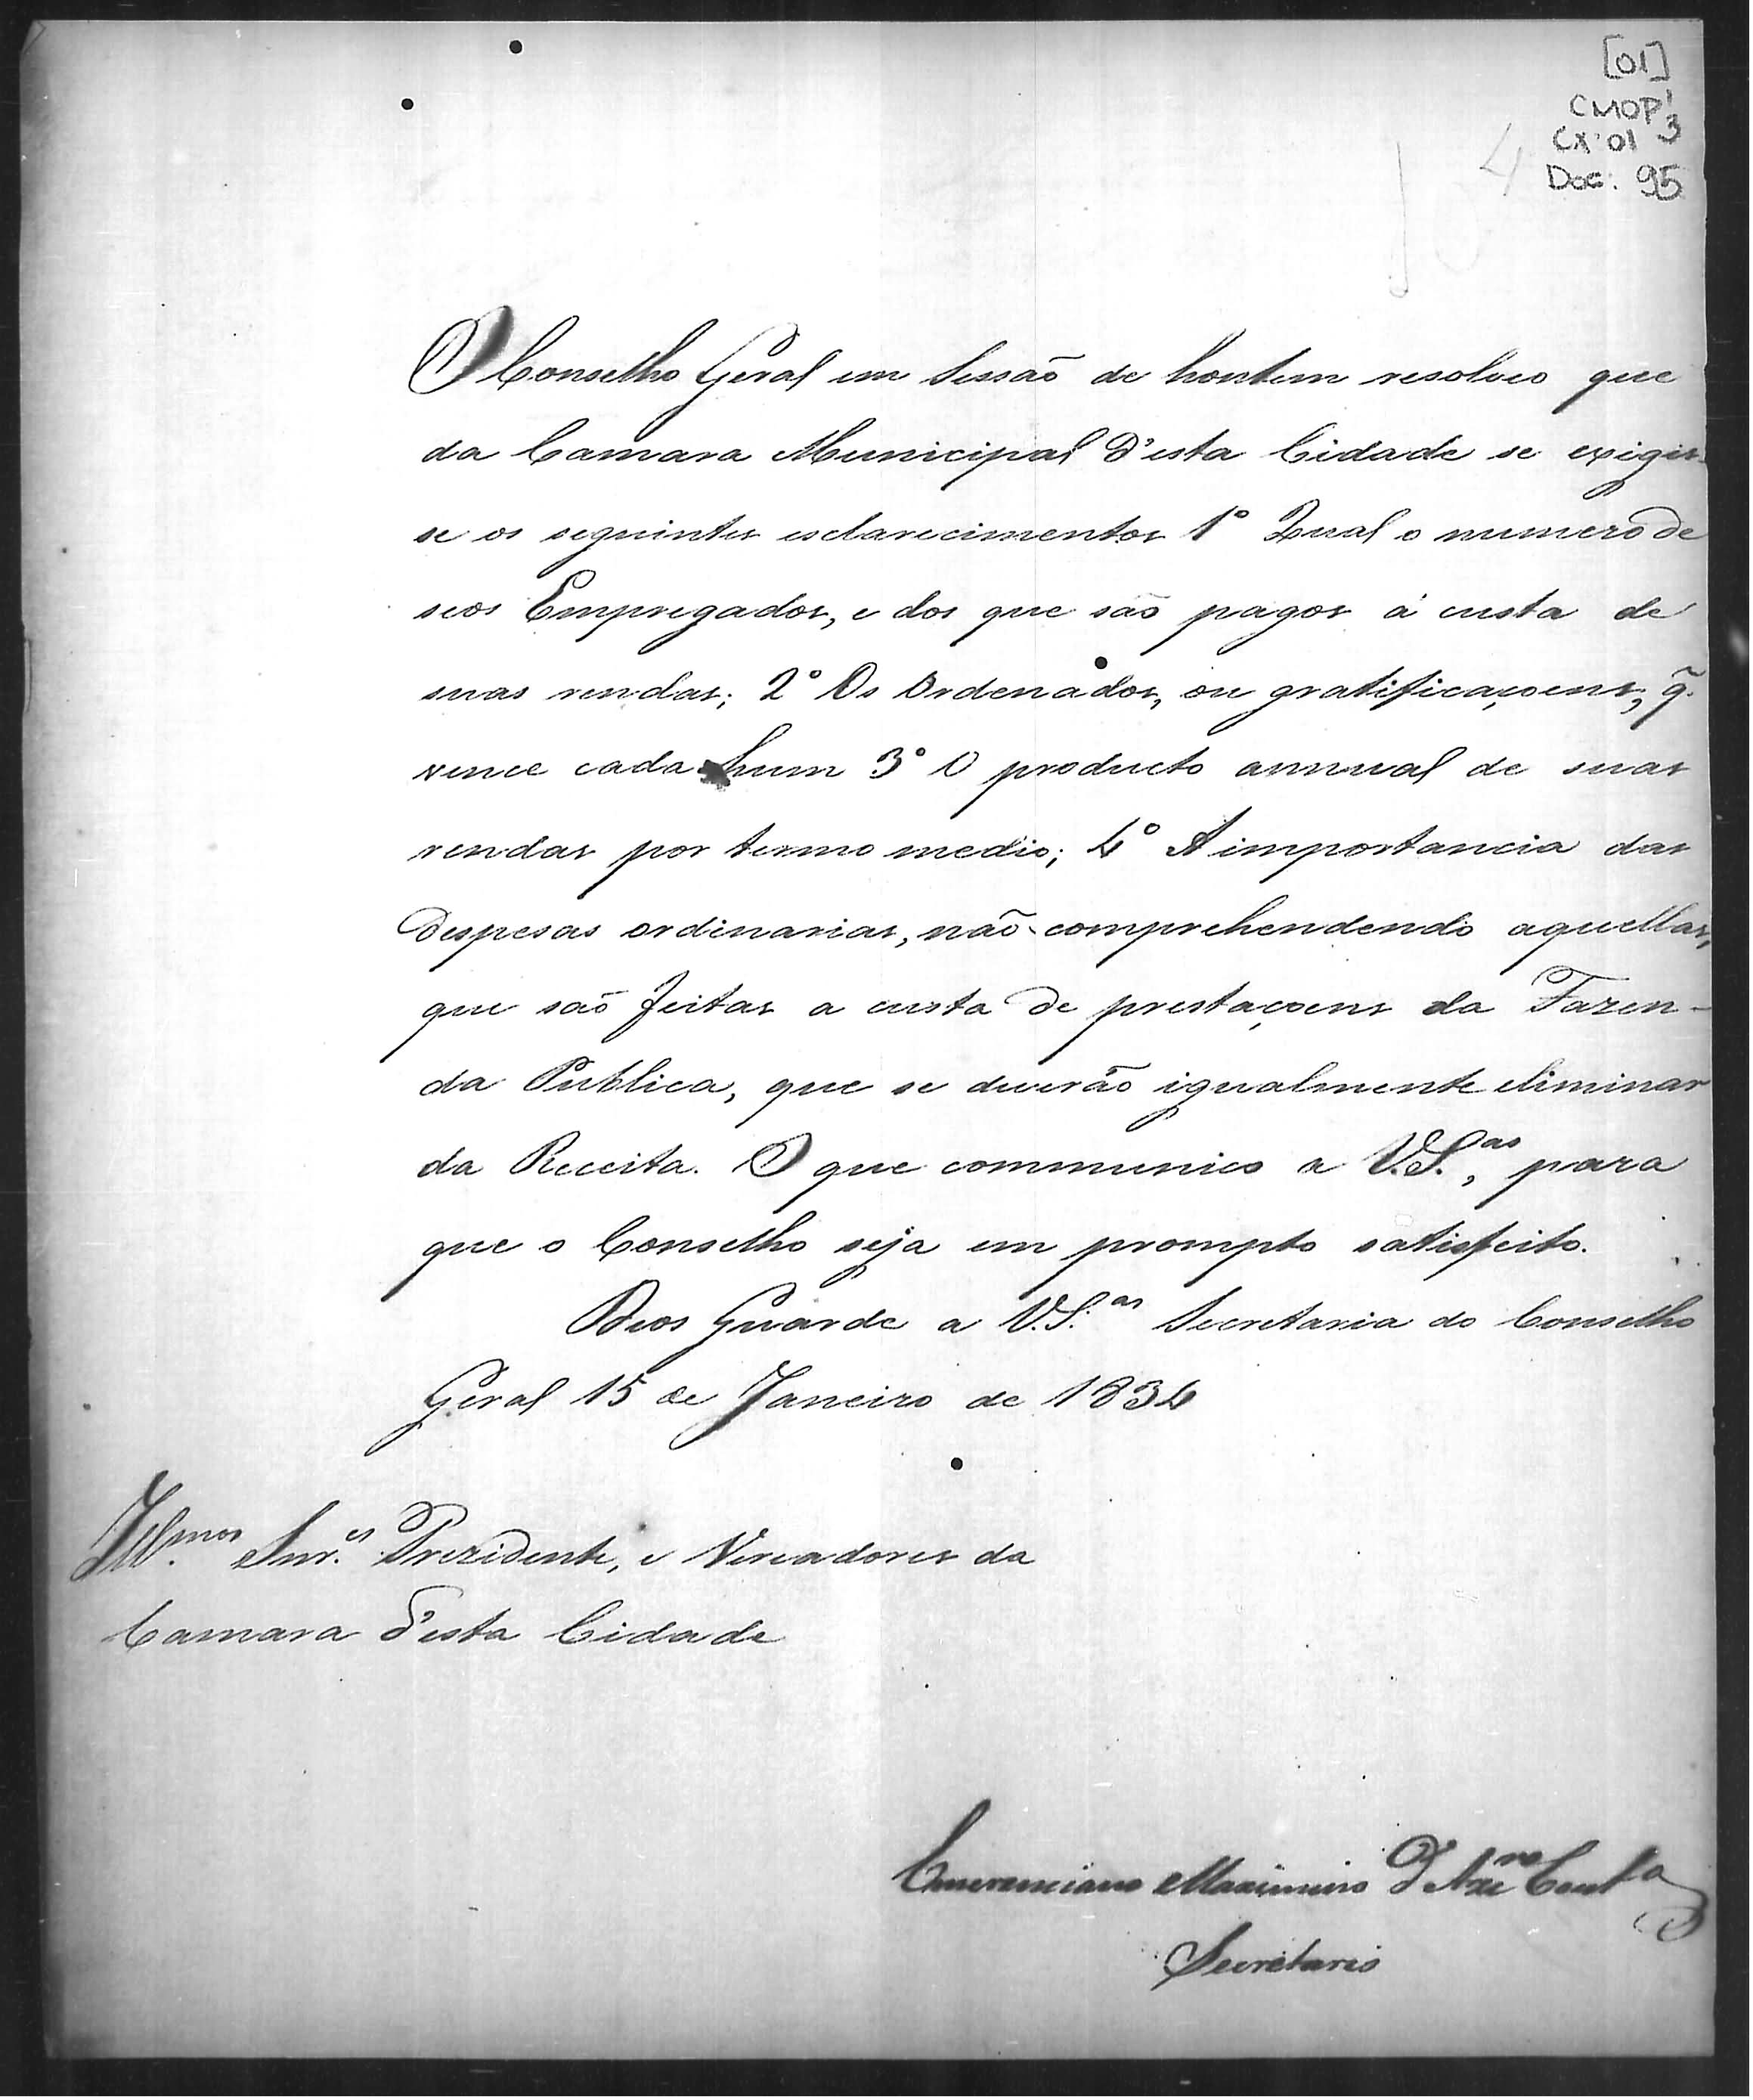 [01]
CMOP
Cx 01 3
Doc: 95
O Conselho Geral em Sessão de hontem resolveo que
da Camara Municipal d'esta Cidade se exigis-
se os seguintes esclarecimentos 1º Qual o numero de
seos Empregados, e dos que são pagos á custa de
suas rendas; 2º Os Ordenados, ou gratificaçoens, q̃
vence cada hum 3º O producto annual de suas
rendas por termo medio; 4º A importancia das
despesas ordinarias, não comprehendendo aquellas,
que são feitas a custa de prestaçoens da Fazen-
da Publica, que se deverão igualmente eliminar
da Receita. O que communico a V.S.as, para
que o Conselho seja em prompto satisfeito.
Deos Guarde a V.S.as Secretaria do Conselho
Geral 15 de Janeiro de 1834
Ill.mos Snr.es Prezidente, e Vereadores da
Camara d'esta Cidade
Maximino d'
Secretario